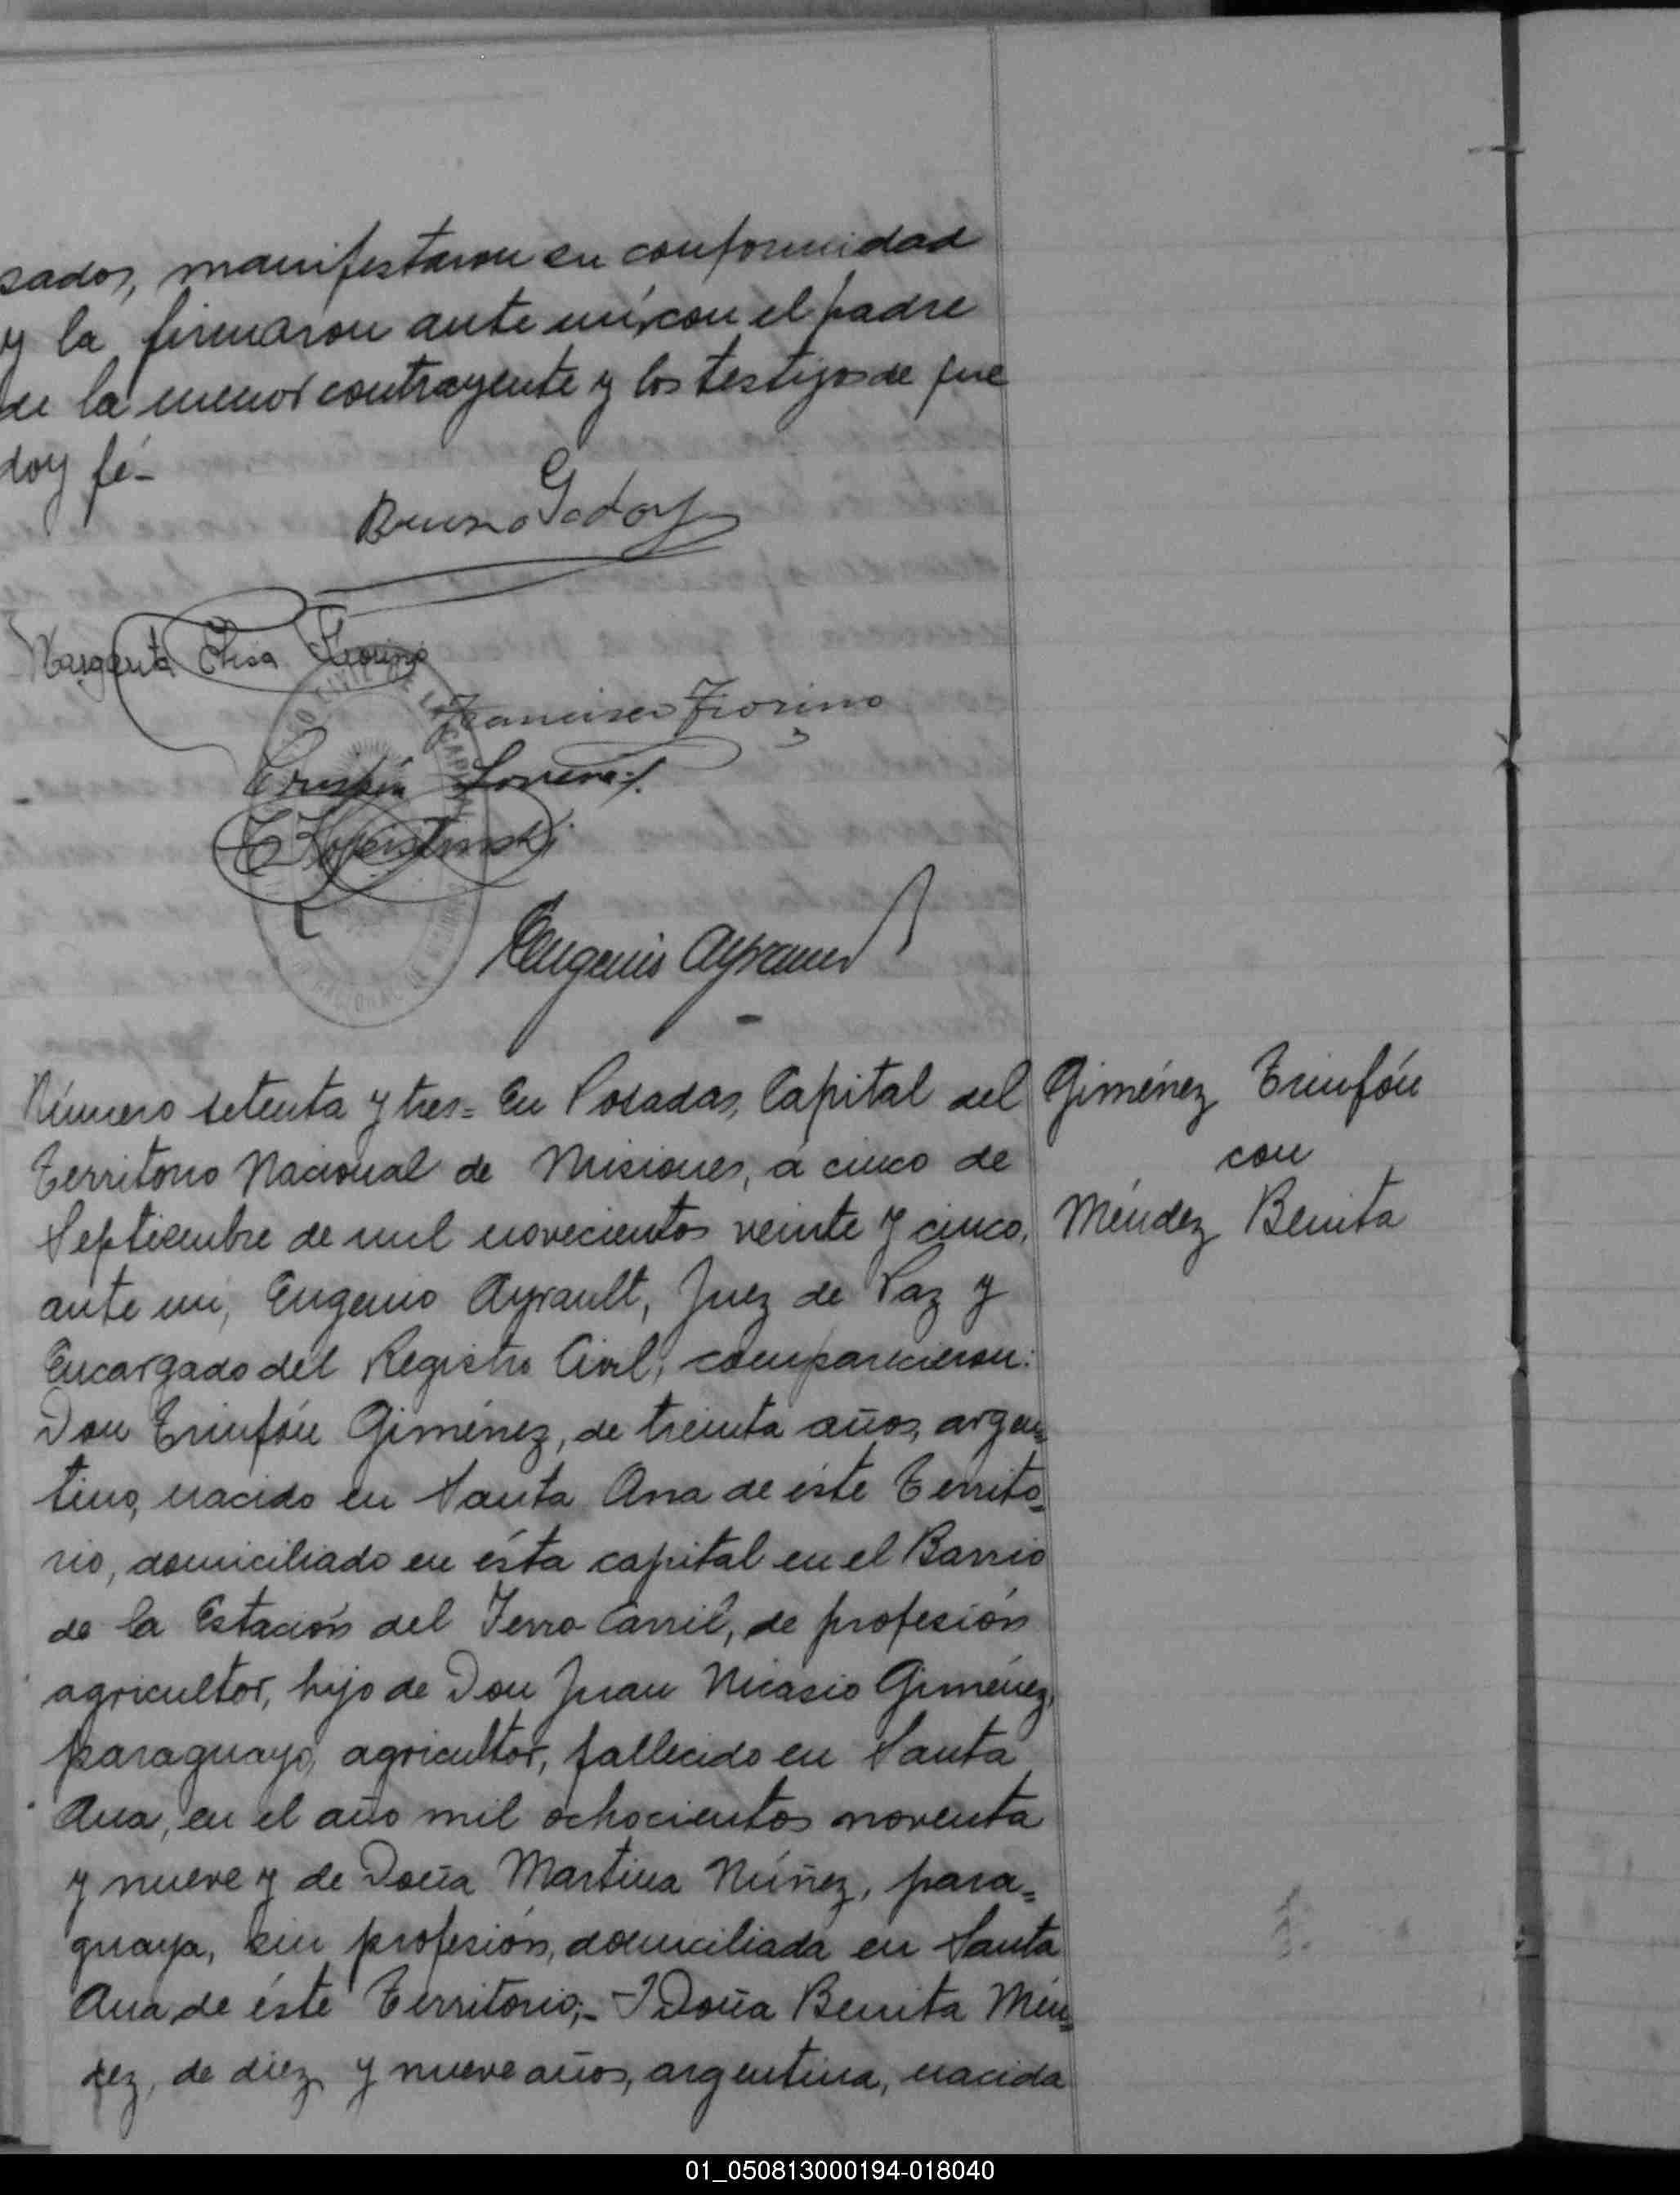 sados, manifestaron su conformidad
y la firmaron ante mí, con el padre
de la menor contrayente y los testigos de que
doy fé-
Bruno Godoy
Margarita Elisa Fiorino
Francisco Fiorino
Crispín
Eugenio Ayrault
Número setenta y tres= En Posadas, Capital del
Territorio Nacional de Misiones, á cinco de
Septiembre de mil novecientos veinte y cinco,
ante mi, Eugenio Ayrault, Juez de Paz y
Encargado del Registro Civil, comparecieron:
Don Trinfón Giménez, de treinta años, argen=
tino, nacido en Santa Ana de éste Territo=
rio, domiciliado en ésta capital en el Barrio
de la Estación del Ferro-Carril, de profesión
agricultor, hijo de Don Juan Nicasio Giménez,
paraguayo, agricultor, fallecido en Santa
Ana, en el año mil ochocientos noventa
y nueve y de Doña Martina Núñez, para=
guaya, sin profesión, domiciliada en Santa
Ana de éste Territorio;- I Doña Benita Mén=
dez, de diez y nueve años, argentina, nacida
Giménez Trinfón
con
Méndez Benita
01_050813000194-018040